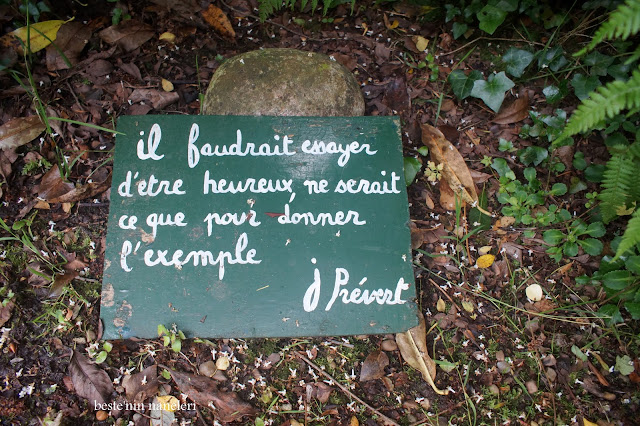 il faudrait essayer
d'être heureux, ne serait
ce que pour donner
l'exemple
j Prévert
beste'nin nameleri